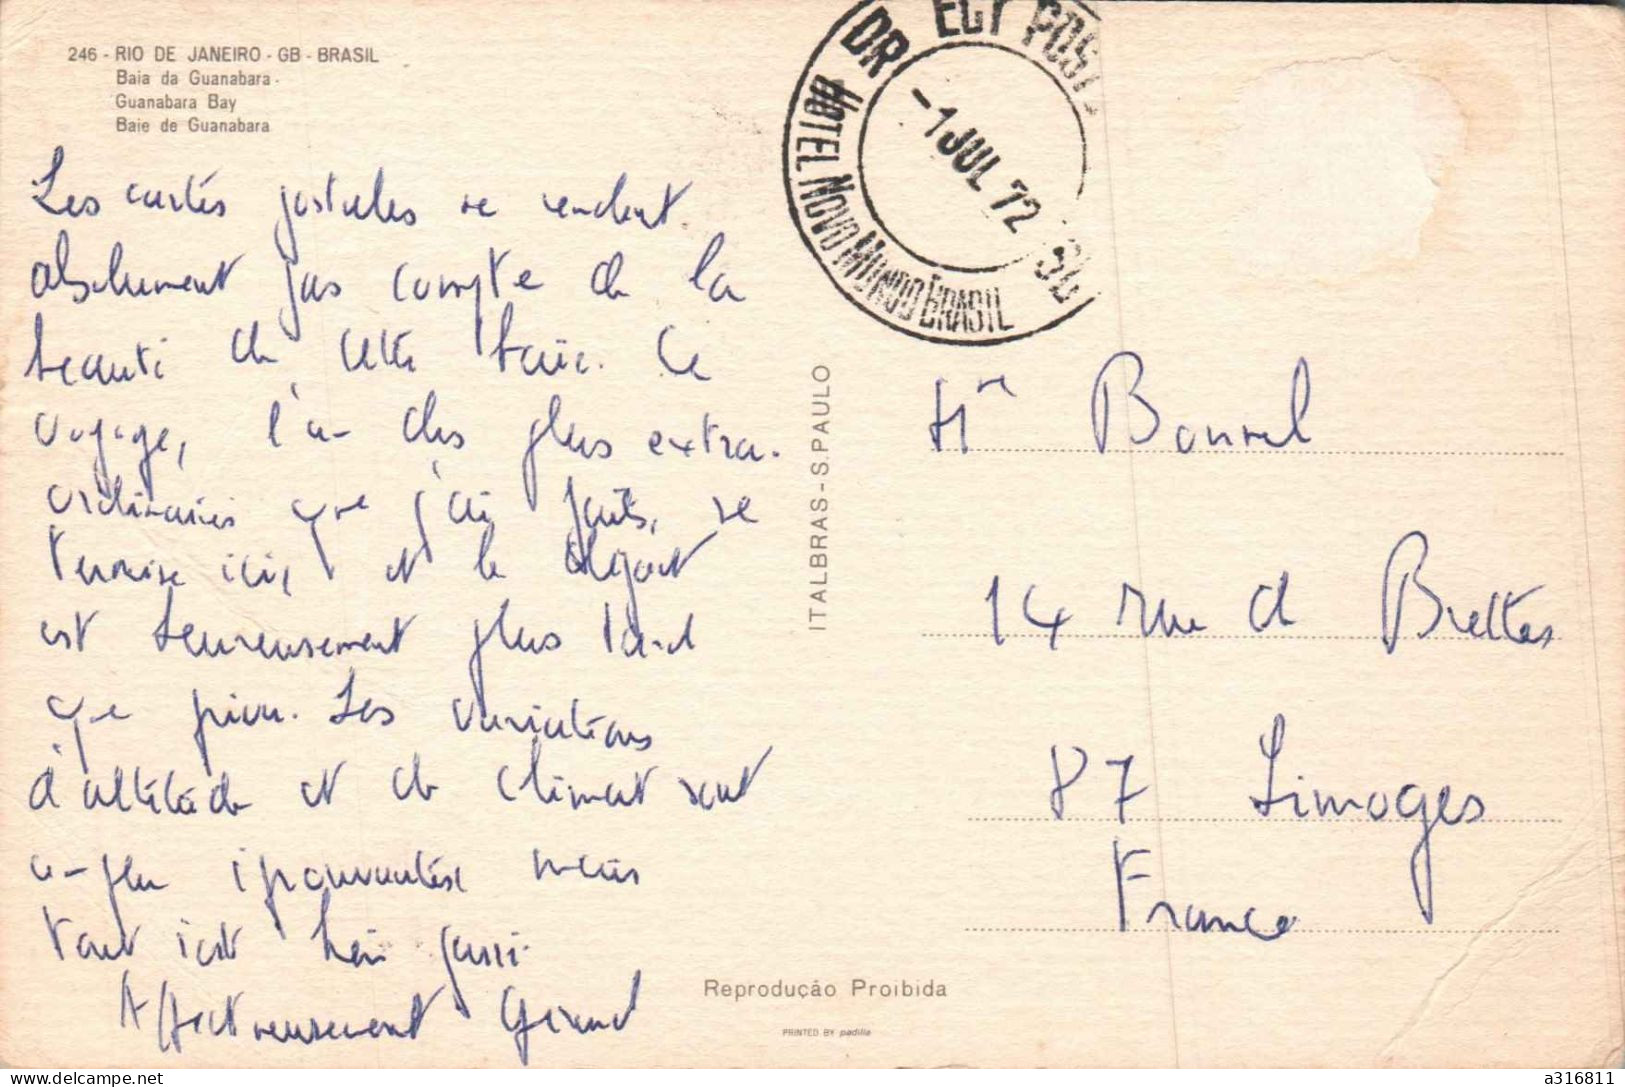 246 - RIO DE JANEIRO - GB - BRASIL
Baia da Guanabara -
Guanabara Bay
Baie de Guanabara
Les cartes postales ne rendent
absolument pas compte de la
beauté de cette baie. Ce
voyage, l'un des plus extra-
ordinaires que j'ai faits, se
termine ici, et le départ
est heureusement plus tard
que prévu. Les variations
d'altitude et de climat sont
un peu éprouvantes mais
tout s'est bien passé.
Affectueusement
DR ECT POST
HOTEL NOVO MUNDO BRASIL
-1 JUL 72
ITALBRAS - S. PAULO
Me
14 rue de Brettes
87 Limoges
France
Reprodução Proibida
PRINTED BY padilla
a316811